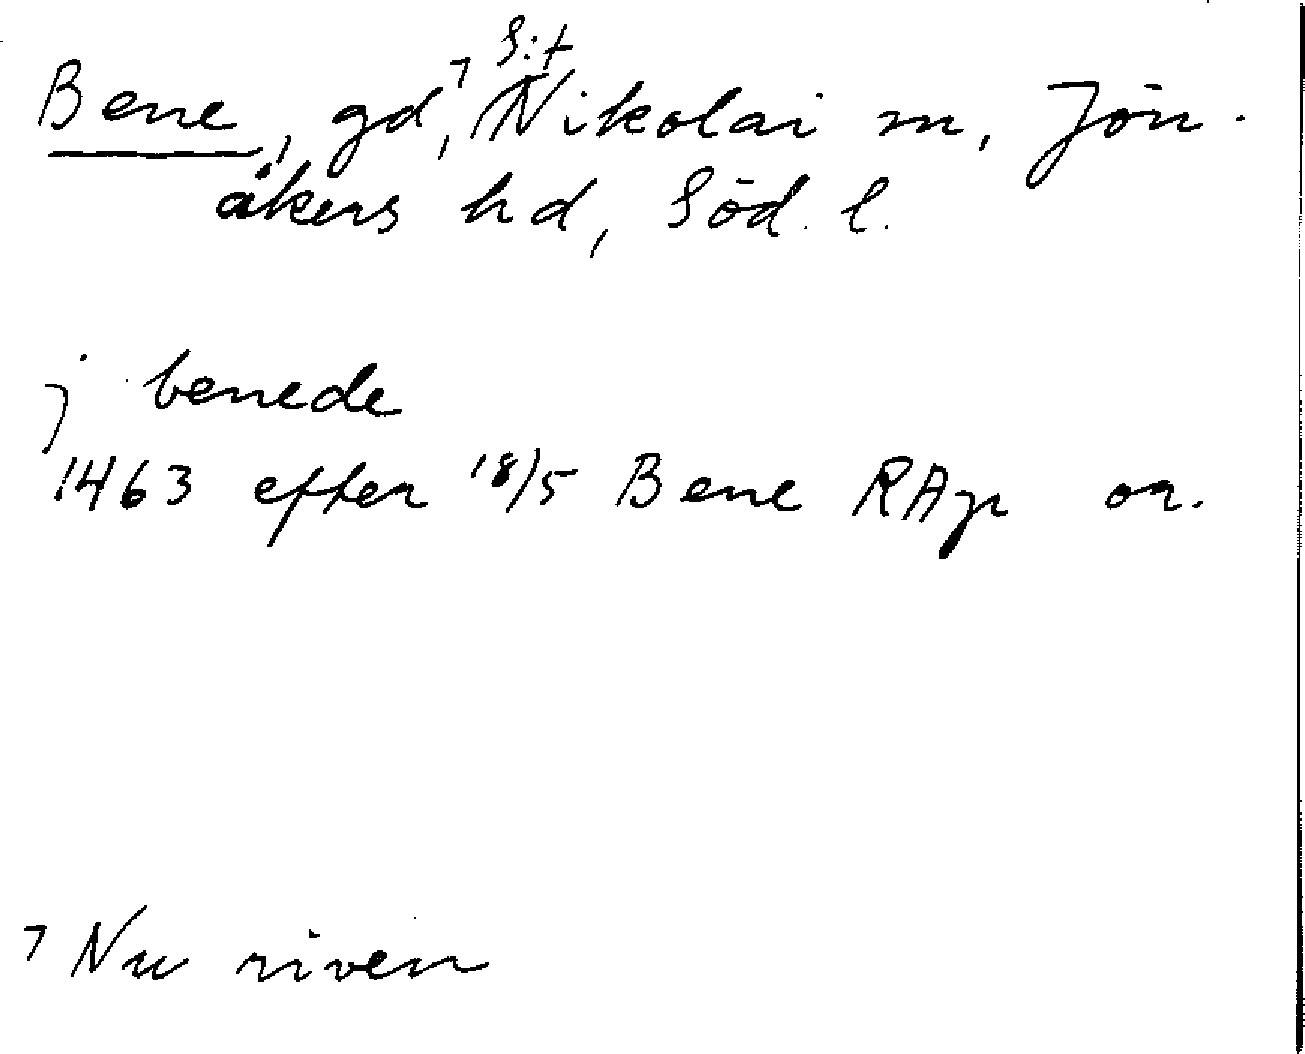 Bene, gd,⁷ S:t Nikolai sn, Jön-
åkers hd, Söd. l.
j benede
1463 efter 18/5 Bene RAp or.
⁷ Nu riven